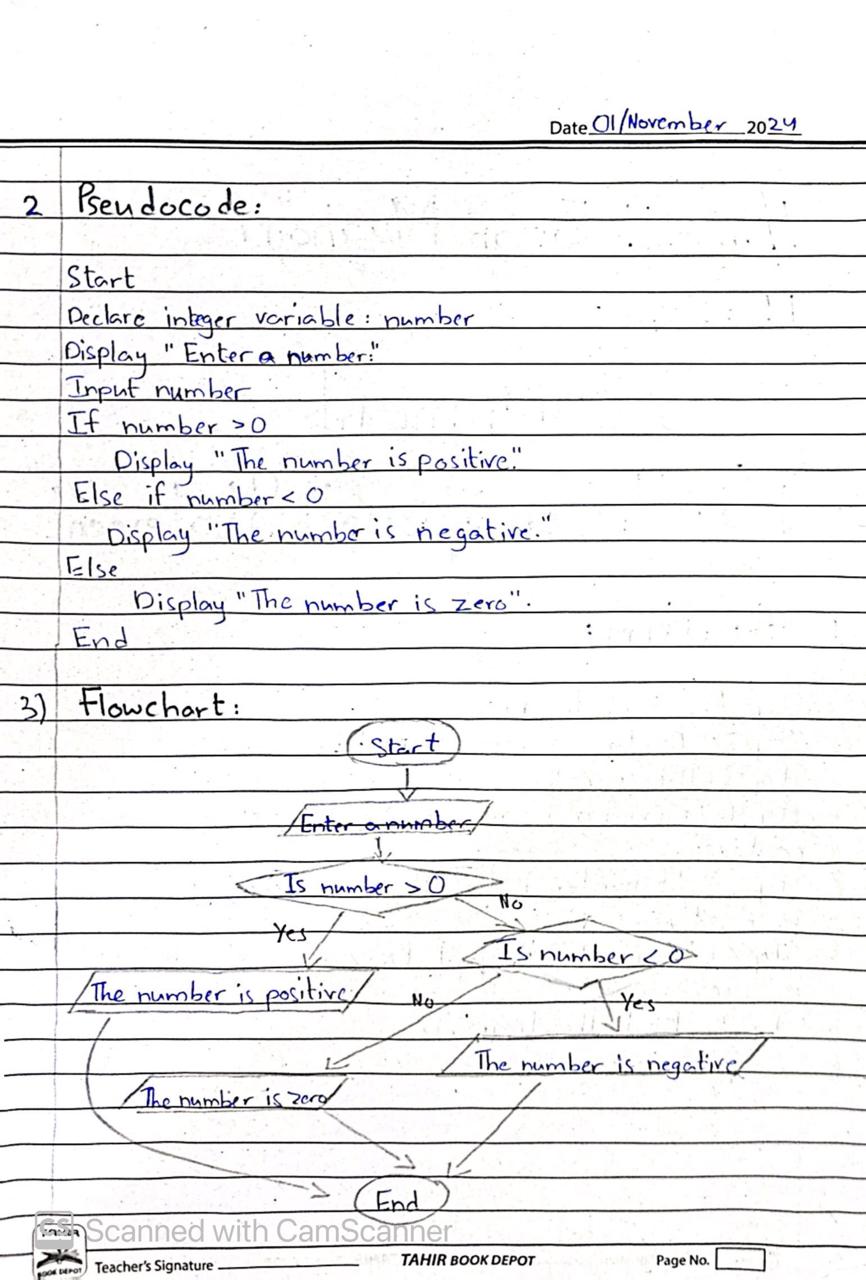 Date 01/November 2024
2 Pseudocode:
Start
Declare integer variable: number
Display "Enter a number:"
Input number
If number >0
Display "The number is positive."
Else if number < 0
Display "The number is negative."
Else
Display "The number is zero".
End
3) Flowchart:
Start
Enter a number
Is number > 0
No
Yes
Is number < 0
The number is positive
No
Yes
The number is negative
The number is zero
End
CS Scanned with CamScanner
BOOK DEPOT
Teacher's Signature
TAHIR BOOK DEPOT
Page No.